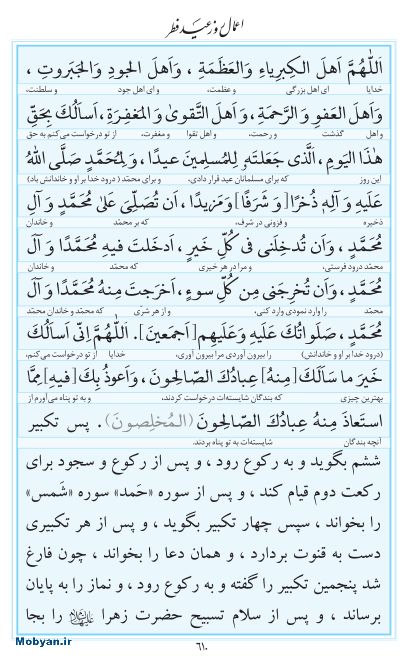 اعمال روز عید فطر
اَللّٰهُمَّ اَهلَ الكِبرِیاءِ وَالعَظَمَةِ ، وَاَهلَ الجودِ وَالجَبَروتِ ،
خدایا ای اهل بزرگی و عظمت، و ای اهل جود و سلطنت،
وَاَهلَ العَفوِ وَالرَّحمَةِ ، وَاَهلَ التَّقویٰ وَالمَغفِرَةِ ، اَسأَلُكَ بِحَقِّ
و اهل گذشت و رحمت، و اهل تقوا و مغفرت، از تو درخواست می‌کنم به حق
هٰذَا الیَومِ ، الَّذی جَعَلتَهُ لِلمُسلِمینَ عیدًا ، وَلِمُحَمَّدٍ صَلَّی اللهُ
این روز که برای مسلمانان عید قرار دادی، و برای محمّد (درود خدا بر او و خاندانش باد)
عَلَیهِ وَآلِهِ ذُخرًا [وَ شَرَفًا] وَمَزیدًا ، اَن تُصَلِّیَ عَلیٰ مُحَمَّدٍ وَ آلِ
ذخیره و فزونی در شرف، که بر محمّد و خاندان
مُحَمَّدٍ ، وَاَن تُدخِلَنی فی كُلِّ خَیرٍ ، اَدخَلتَ فیهِ مُحَمَّدًا وَ آلَ
محمّد درود فرستی، و مرا در هر خیری که محمّد و خاندان
مُحَمَّدٍ ، وَاَن تُخرِجَنی مِن كُلِّ سوءٍ ، اَخرَجتَ مِنهُ مُحَمَّدًا وَ آلَ
محمّد را وارد نمودی وارد کنی، و از هر شرّی که محمّد و خاندان محمّد
مُحَمَّدٍ ، صَلَواتُكَ عَلَیهِ وَعَلَیهِم [اَجمَعینَ]. اَللّٰهُمَّ اِنّی اَسأَلُكَ
(درود خدا بر او و خاندانش) را بیرون آوردی مرا بیرون آوری، خدایا از تو درخواست می‌کنم،
خَیرَ ما سَأَلَكَ [مِنهُ] عِبادُكَ الصّالِحونَ ، وَاَعوذُ بِكَ [فیهِ] مِمَّا
بهترین چیزی که بندگان شایسته‌ات درخواست کردند، و به تو پناه می‌آورم از
استَعاذَ مِنهُ عِبادُكَ الصّالِحونَ (المُخلِصونَ) . پس تکبیر
آنچه بندگان شایسته‌ات به تو پناه بردند.
ششم بگوید و به رکوع رود ، و پس از رکوع و سجود برای
رکعت دوم قیام کند ، و پس از سوره «حَمد» سوره «شَمس»
را بخواند ، سپس چهار تکبیر بگوید ، و پس از هر تکبیری
دست به قنوت بردارد ، و همان دعا را بخواند ، چون فارغ
شد پنجمین تکبیر را گفته و به رکوع رود ، و نماز را به پایان
برساند ، و پس از سلام تسبیح حضرت زهرا علیها السلام را بجا
Mobyan.ir
۶۱۰